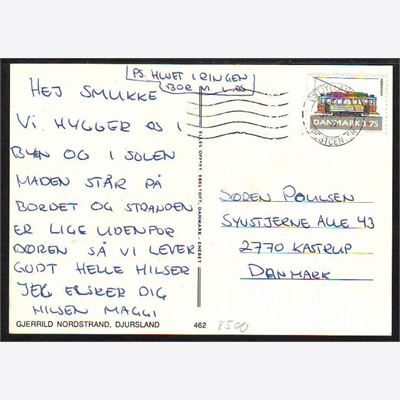 PS. HUSET I RINGEN
BOR M
HEJ SMUKKE
VI HYGGER OS I
BYEN OG I SOLEN
MADEN STÅR PÅ
BORDET OG STRANDEN
ER LIGE UDENFOR
DØREN SÅ VI LEVER
GODT HELLE HILSER
JEG ELSKER DIG
HILSEN MAGGI
GJERRILD NORDSTRAND, DJURSLAND 462
8500
DANMARK 3.75
SØREN POULSEN
SYVSTJERNE ALLE 43
2770 KASTRUP
DANMARK